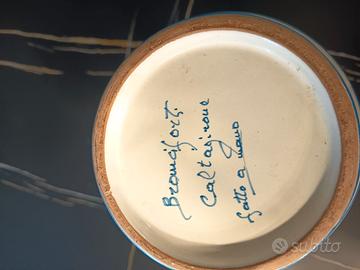 Caltagirone
fatto a mano
subito